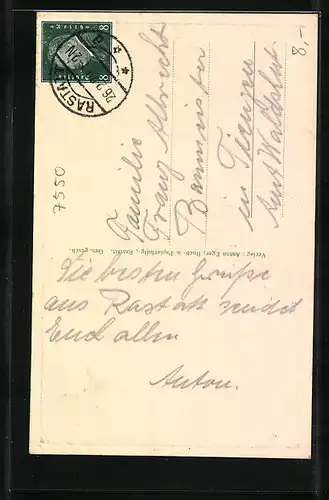 8,-
8 8
RASTATT
26.2
7550
Familie
Franz Albrecht
Baumeister
in Tiengen
Amt Waldshut
Verlag: Anton Eger, Buch- u. Papierhdlg., Rastatt. Ges. gesch.
Die besten Grüsse
aus Rastatt sendet
Euch allen
Anton.